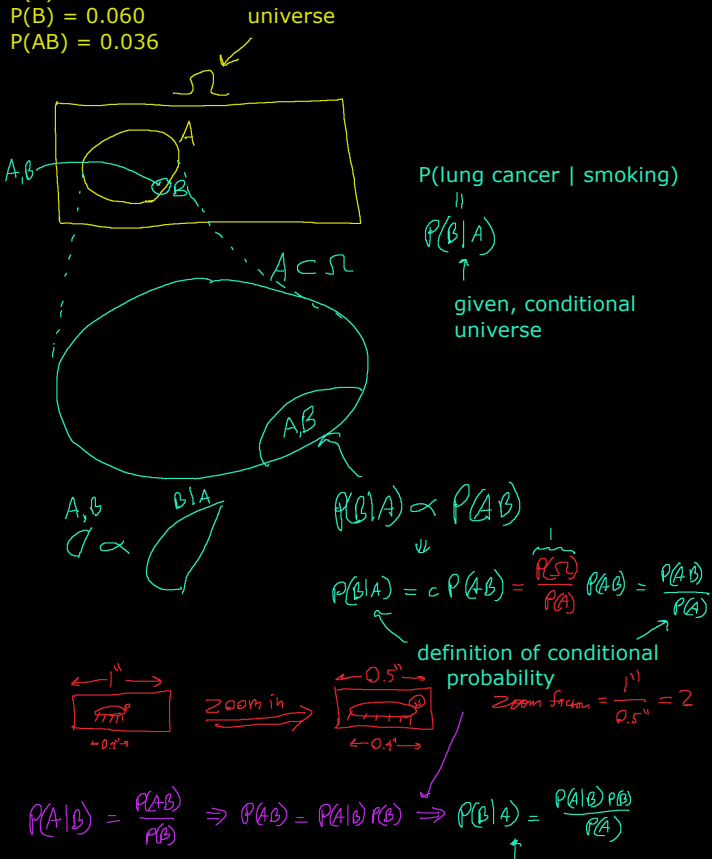 P(B) = 0.060
P(AB) = 0.036
universe
Ω
A
A,B
B
P(lung cancer | smoking)
=
P(B|A)
given, conditional
universe
A ⊂ Ω
A,B
A,B ∝ B|A
P(B|A) ∝ P(AB)
⇓
P(B|A) = c P(AB) = P(Ω)/P(A) P(AB) = P(AB)/P(A)
1
definition of conditional
probability
1"
zoom in
0.5"
zoom factor = 1"/0.5" = 2
0.4"
P(A|B) = P(AB)/P(B) ⇒ P(AB) = P(A|B) P(B) ⇒ P(B|A) = P(A|B) P(B)/P(A)